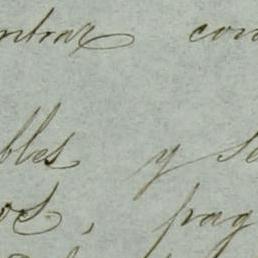 ntrar con
bles y se
os, pag